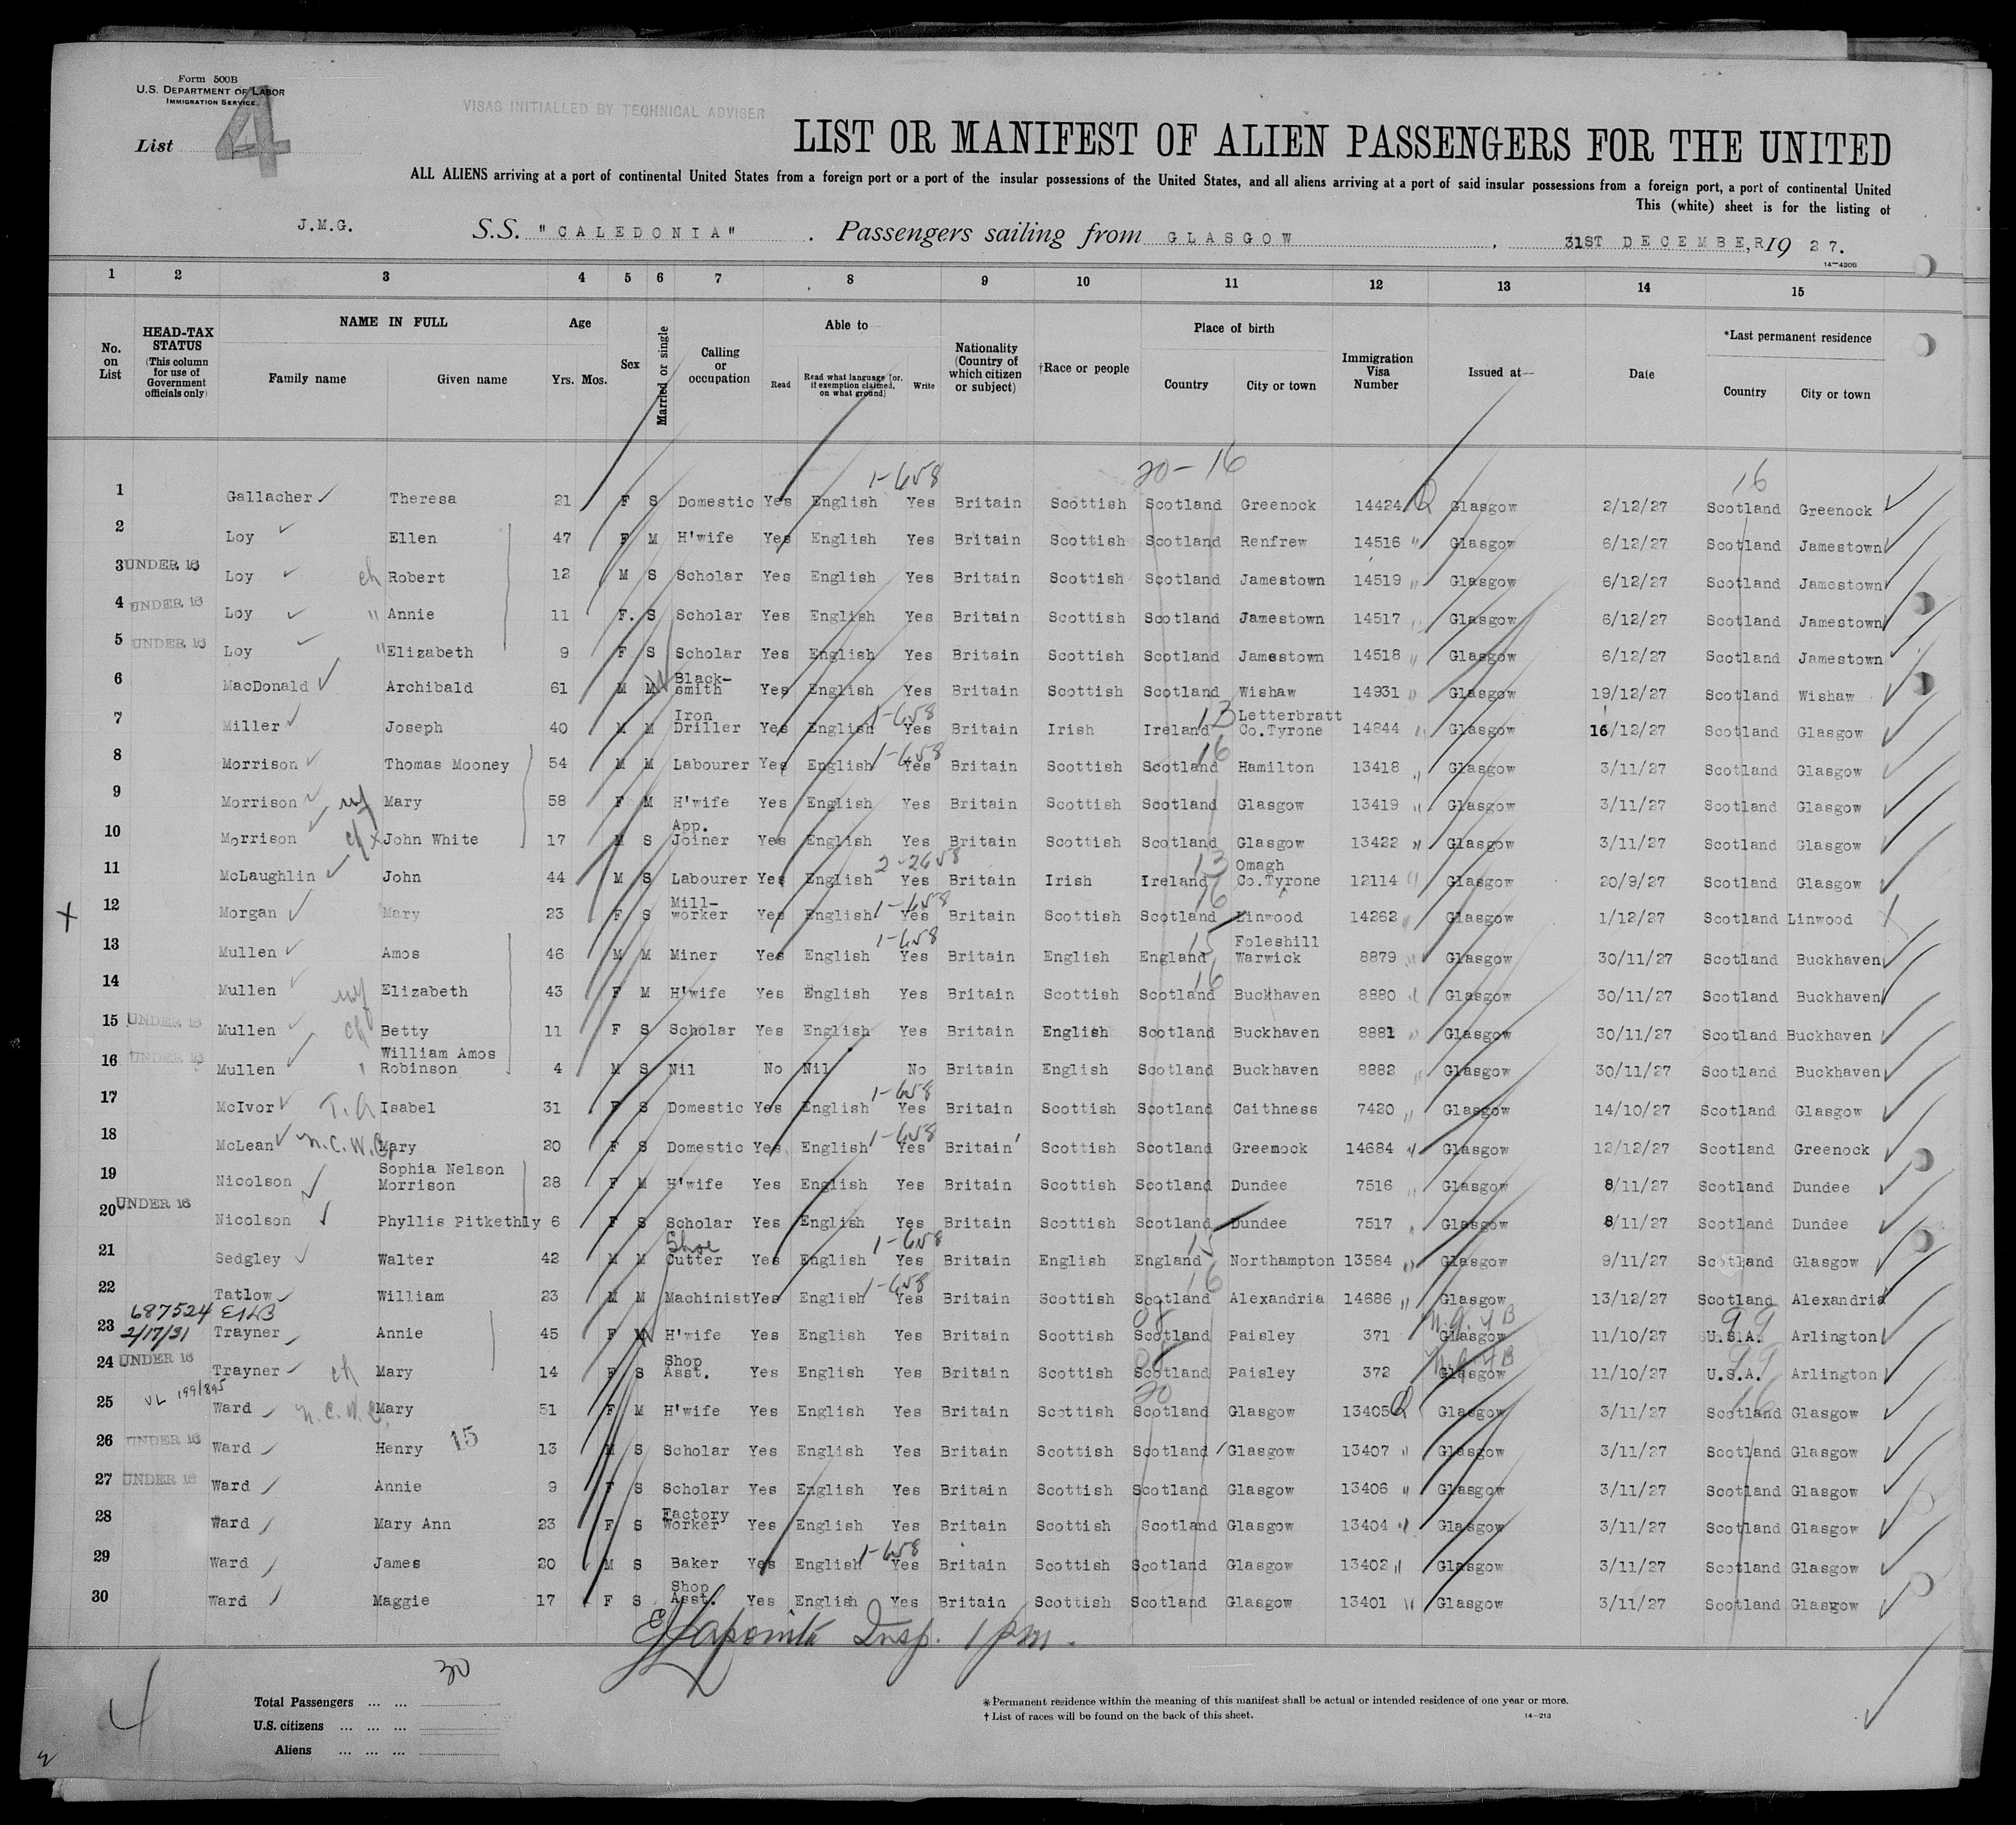 Form 500B
U.S. DEPARTMENT OF LABOR
IMMIGRATION SERVICE.
VISAS INITIALLED BY TECHNICAL ADVISER
List 4
LIST OR MANIFEST OF ALIEN PASSENGERS FOR THE UNITED
ALL ALIENS arriving at a port of continental United States from a foreign port or a port of the insular possessions of the United States, and all aliens arriving at a port of said insular possessions from a foreign port, a port of continental United
This (white) sheet is for the listing of
J.M.G. S.S. "CALEDONIA" . Passengers sailing from GLASGOW , 31ST DECEMBER, 19 27.
14-4208
1 2 3 4 5 6 7 8 9 10 11 12 13 14 15
No. on List
HEAD-TAX STATUS (This column for use of Government officials only)
NAME IN FULL
Family name Given name
Age
Yrs. Mos.
Sex
Married or single
Calling or occupation
Able to
Read
Read what language [or, if exemption claimed, on what ground]
Write
Nationality (Country of which citizen or subject)
†Race or people
Place of birth
Country City or town
Immigration Visa Number
Issued at—
Date
*Last permanent residence
Country City or town
1-658 20-16 16
1 Gallacher Theresa 21 F S Domestic Yes English Yes Britain Scottish Scotland Greenock 14424 Glasgow 2/12/27 Scotland Greenock
2 Loy Ellen 47 F M H'wife Yes English Yes Britain Scottish Scotland Renfrew 14516 " Glasgow 6/12/27 Scotland Jamestown
3 UNDER 16 Loy ch Robert 12 M S Scholar Yes English Yes Britain Scottish Scotland Jamestown 14519 " Glasgow 6/12/27 Scotland Jamestown
4 UNDER 16 Loy " Annie 11 F. S Scholar Yes English Yes Britain Scottish Scotland Jamestown 14517 " Glasgow 6/12/27 Scotland Jamestown
5 UNDER 16 Loy " Elizabeth 9 F S Scholar Yes English Yes Britain Scottish Scotland Jamestown 14518 " Glasgow 6/12/27 Scotland Jamestown
6 MacDonald Archibald 61 M M Black-smith Yes English Yes Britain Scottish Scotland Wishaw 14931 " Glasgow 19/12/27 Scotland Wishaw
7 Miller Joseph 40 M M Iron Driller Yes English 1-658 Yes Britain Irish Ireland 13 Letterbratt Co.Tyrone 14844 " Glasgow 16/12/27 Scotland Glasgow
8 Morrison Thomas Mooney 54 M M Labourer Yes English 1-658 Yes Britain Scottish Scotland 16 Hamilton 13418 " Glasgow 3/11/27 Scotland Glasgow
9 Morrison wf Mary 58 F M H'wife Yes English Yes Britain Scottish Scotland Glasgow 13419 " Glasgow 3/11/27 Scotland Glasgow
10 Morrison ch x John White 17 M S App. Joiner Yes English Yes Britain Scottish Scotland Glasgow 13422 " Glasgow 3/11/27 Scotland Glasgow
11 McLaughlin John 44 M S Labourer Yes English 2-2658 Yes Britain Irish Ireland 13 Omagh Co.Tyrone 12114 " Glasgow 20/9/27 Scotland Glasgow
x 12 Morgan Mary 23 F S Mill-worker Yes English 1-658 Yes Britain Scottish Scotland 16 Linwood 14262 " Glasgow 1/12/27 Scotland Linwood x
13 Mullen Amos 46 M M Miner Yes English 1-658 Yes Britain English England 15 Foleshill Warwick 8879 " Glasgow 30/11/27 Scotland Buckhaven
14 Mullen wf Elizabeth 43 F M H'wife Yes English Yes Britain Scottish Scotland 16 Buckhaven 8880 " Glasgow 30/11/27 Scotland Buckhaven
15 UNDER 16 Mullen ch Betty 11 F S Scholar Yes English Yes Britain English Scotland Buckhaven 8881 " Glasgow 30/11/27 Scotland Buckhaven
16 UNDER 16 Mullen " William Amos Robinson 4 M S Nil No Nil No Britain English Scotland Buckhaven 8882 " Glasgow 30/11/27 Scotland Buckhaven
17 McIvor T.A Isabel 31 F S Domestic Yes English 1-658 Yes Britain Scottish Scotland Caithness 7420 " Glasgow 14/10/27 Scotland Glasgow
18 McLean N.C.W.C. Mary 20 F S Domestic Yes English 1-658 Yes Britain Scottish Scotland Greenock 14684 " Glasgow 12/12/27 Scotland Greenock
19 Nicolson Sophia Nelson Morrison 28 F M H'wife Yes English Yes Britain Scottish Scotland Dundee 7516 " Glasgow 8/11/27 Scotland Dundee
20 UNDER 16 Nicolson Phyllis Pitkethly 6 F S Scholar Yes English Yes Britain Scottish Scotland Dundee 7517 " Glasgow 8/11/27 Scotland Dundee
21 Sedgley Walter 42 M M Shoe Cutter Yes English 1-658 Yes Britain English England 15 Northampton 13584 " Glasgow 9/11/27 Scotland Glasgow
22 Tatlow William 23 M M Machinist Yes English 1-658 Yes Britain Scottish Scotland 16 Alexandria 14686 " Glasgow 13/12/27 Scotland Alexandria
687524
23 2/17/31 Trayner Annie 45 F M H'wife Yes English Yes Britain Scottish Scotland Paisley 371 Glasgow 11/10/27 U.S.A. 99 Arlington
24 UNDER 16 Trayner ch Mary 14 F S Shop Asst. Yes English Yes Britain Scottish Scotland Paisley 372 Glasgow 11/10/27 U.S.A. 99 Arlington
VL 199/895
25 Ward N.C.W.C. Mary 51 F M H'wife Yes English Yes Britain Scottish 20 Scotland Glasgow 13405 Glasgow 3/11/27 16 Scotland Glasgow
26 UNDER 16 Ward Henry 15 13 M S Scholar Yes English Yes Britain Scottish Scotland Glasgow 13407 " Glasgow 3/11/27 Scotland Glasgow
27 UNDER 16 Ward Annie 9 F S Scholar Yes English Yes Britain Scottish Scotland Glasgow 13406 " Glasgow 3/11/27 Scotland Glasgow
28 Ward Mary Ann 23 F S Factory Worker Yes English Yes Britain Scottish Scotland Glasgow 13404 " Glasgow 3/11/27 Scotland Glasgow
29 Ward James 20 M S Baker Yes English 1-658 Yes Britain Scottish Scotland Glasgow 13402 " Glasgow 3/11/27 Scotland Glasgow
30 Ward Maggie 17 F S Shop Asst. Yes English Yes Britain Scottish Scotland Glasgow 13401 " Glasgow 3/11/27 Scotland Glasgow
Lapointe Insp. 1 pm.
4
30
Total Passengers ... ...
U.S. citizens ... ... ...
Aliens ... ... ...
* Permanent residence within the meaning of this manifest shall be actual or intended residence of one year or more.
† List of races will be found on the back of this sheet.
14-213